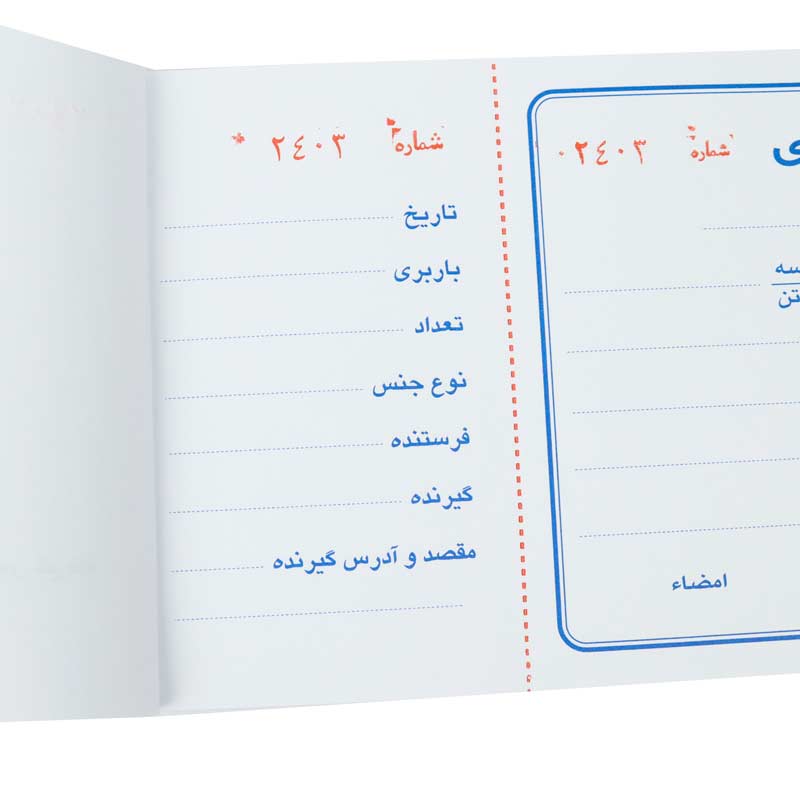 شماره ٢٤٠٣ *
تاریخ
باربری
تعداد
نوع جنس
فرستنده
گیرنده
مقصد و آدرس گیرنده
ی
شماره ٠٢٤٠٣
سه
تن
امضاء